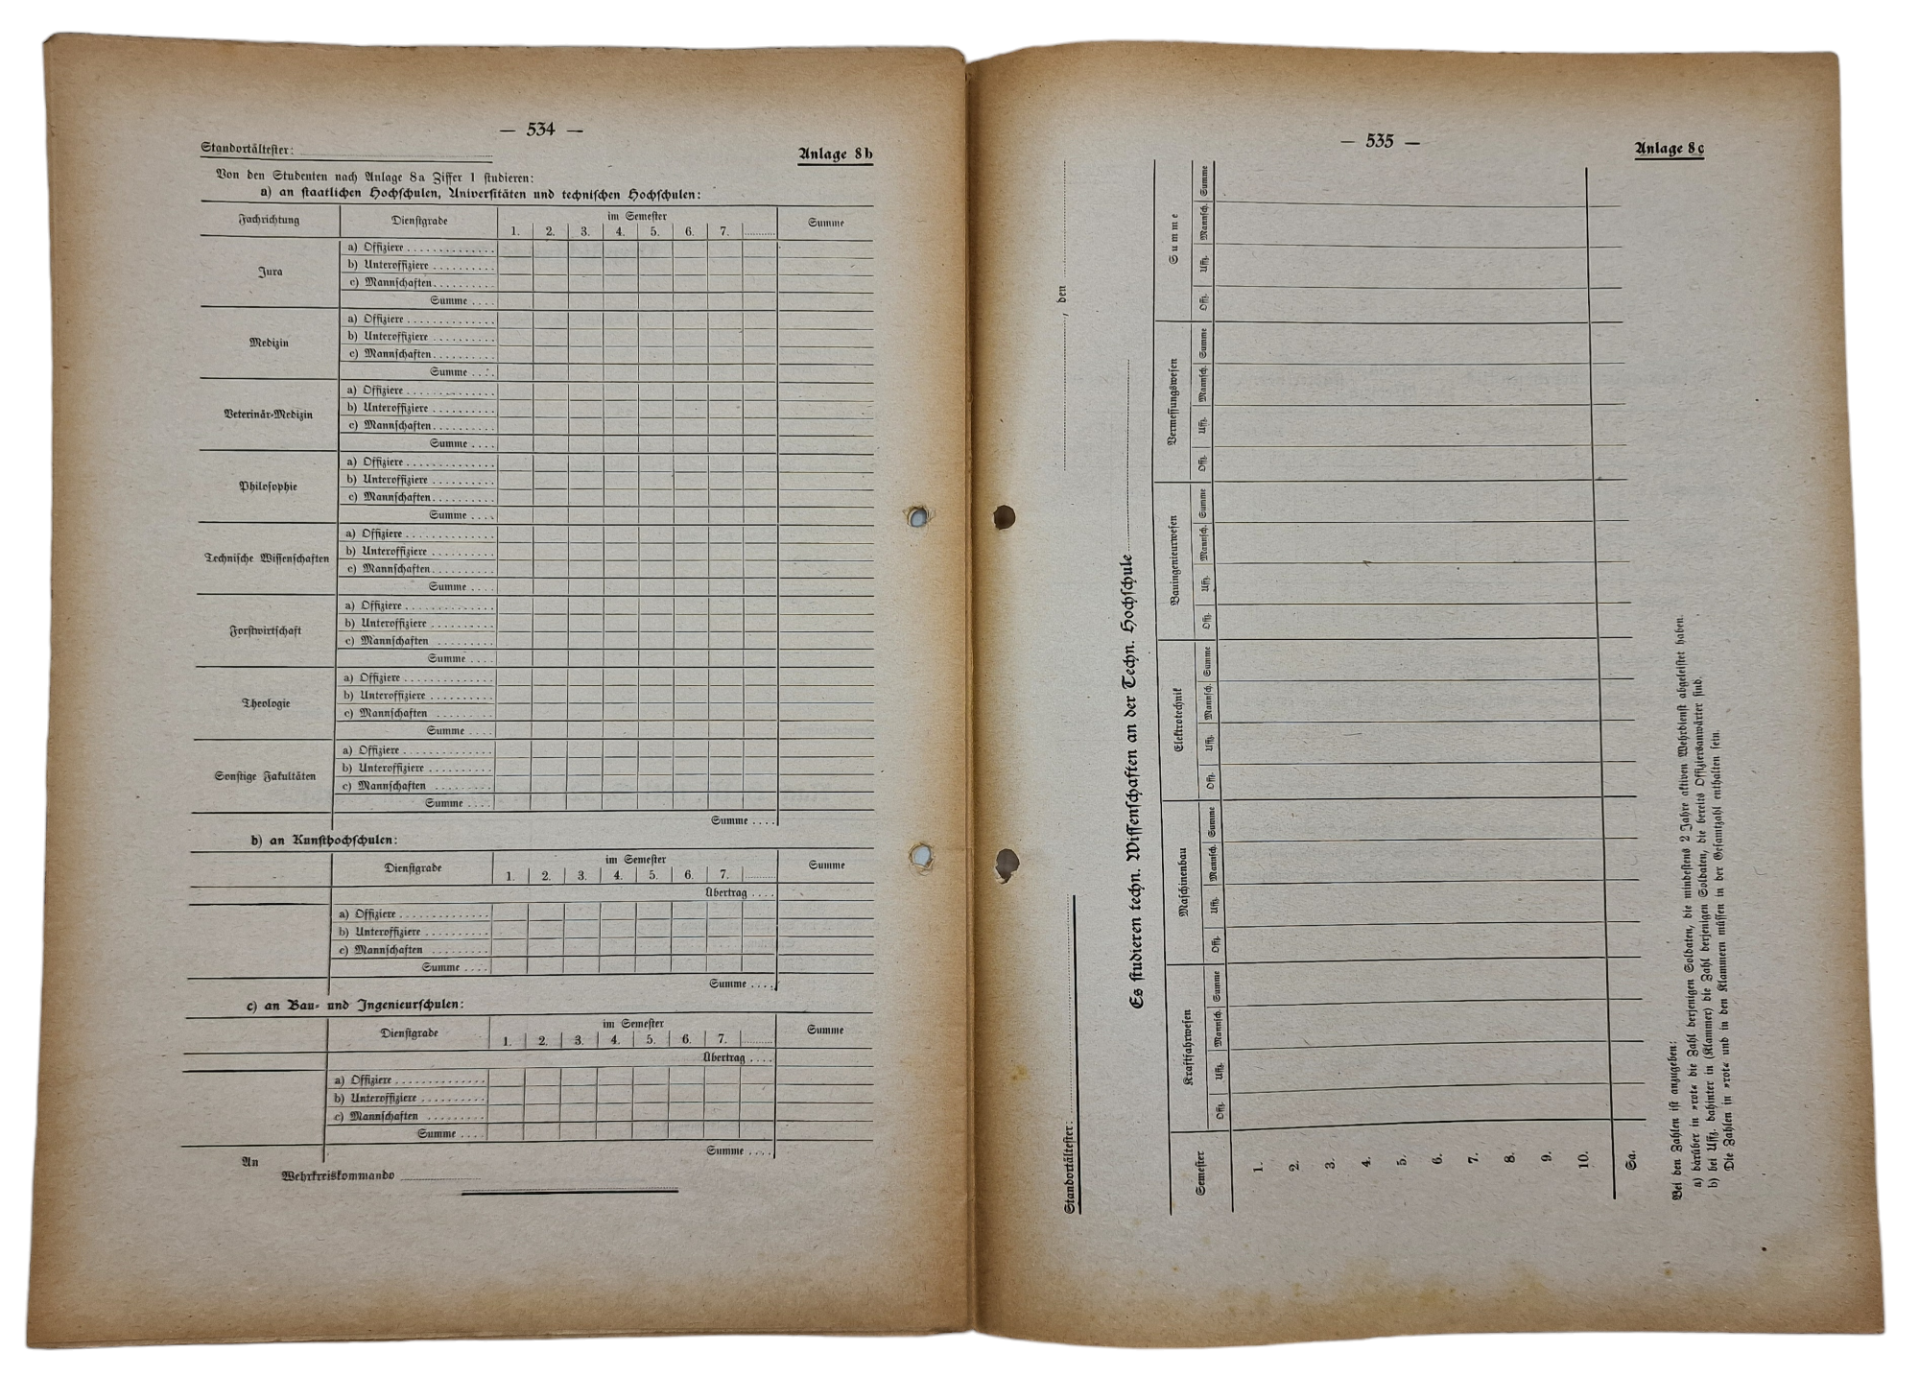 — 534 —
Standortältester:
Anlage 8b
Von den Studenten nach Anlage 8a Ziffer 1 studieren:
a) an staatlichen Hochschulen, Universitäten und technischen Hochschulen:
Fachrichtung Dienstgrade im Semester Summe
1. 2. 3. 4. 5. 6. 7.
Jura
a) Offiziere
b) Unteroffiziere
c) Mannschaften
Summe
Medizin
a) Offiziere
b) Unteroffiziere
c) Mannschaften
Summe
Veterinär-Medizin
a) Offiziere
b) Unteroffiziere
c) Mannschaften
Summe
Philosophie
a) Offiziere
b) Unteroffiziere
c) Mannschaften
Summe
Technische Wissenschaften
a) Offiziere
b) Unteroffiziere
c) Mannschaften
Summe
Forstwirtschaft
a) Offiziere
b) Unteroffiziere
c) Mannschaften
Summe
Theologie
a) Offiziere
b) Unteroffiziere
c) Mannschaften
Summe
Sonstige Fakultäten
a) Offiziere
b) Unteroffiziere
c) Mannschaften
Summe
Summe
b) an Kunsthochschulen:
Dienstgrade im Semester Summe
1. 2. 3. 4. 5. 6. 7.
Übertrag
a) Offiziere
b) Unteroffiziere
c) Mannschaften
Summe
Summe
c) an Bau- und Ingenieurschulen:
Dienstgrade im Semester Summe
1. 2. 3. 4. 5. 6. 7.
Übertrag
a) Offiziere
b) Unteroffiziere
c) Mannschaften
Summe
Summe
An
Wehrkreiskommando
— 535 —
Anlage 8c
Standortältester: , den
Es studieren techn. Wissenschaften an der Techn. Hochschule
Semester Kraftfahrwesen Maschinenbau Elektrotechnik Bauingenieurwesen Vermessungswesen Summe
Offz. Uffz. Mannsch. Summe Offz. Uffz. Mannsch. Summe Offz. Uffz. Mannsch. Summe Offz. Uffz. Mannsch. Summe Offz. Uffz. Mannsch. Summe Offz. Uffz. Mannsch. Summe
1.
2.
3.
4.
5.
6.
7.
8.
9.
10.
Sa.
Bei den Zahlen ist anzugeben:
a) darüber in »rot« die Zahl derjenigen Soldaten, die mindestens 2 Jahre aktiven Wehrdienst abgeleistet haben.
b) bei Uffz. dahinter in (Klammer) die Zahl derjenigen Soldaten, die bereits Offizieranwärter sind.
Die Zahlen in »rot« und in den Klammern müssen in der Gesamtzahl enthalten sein.